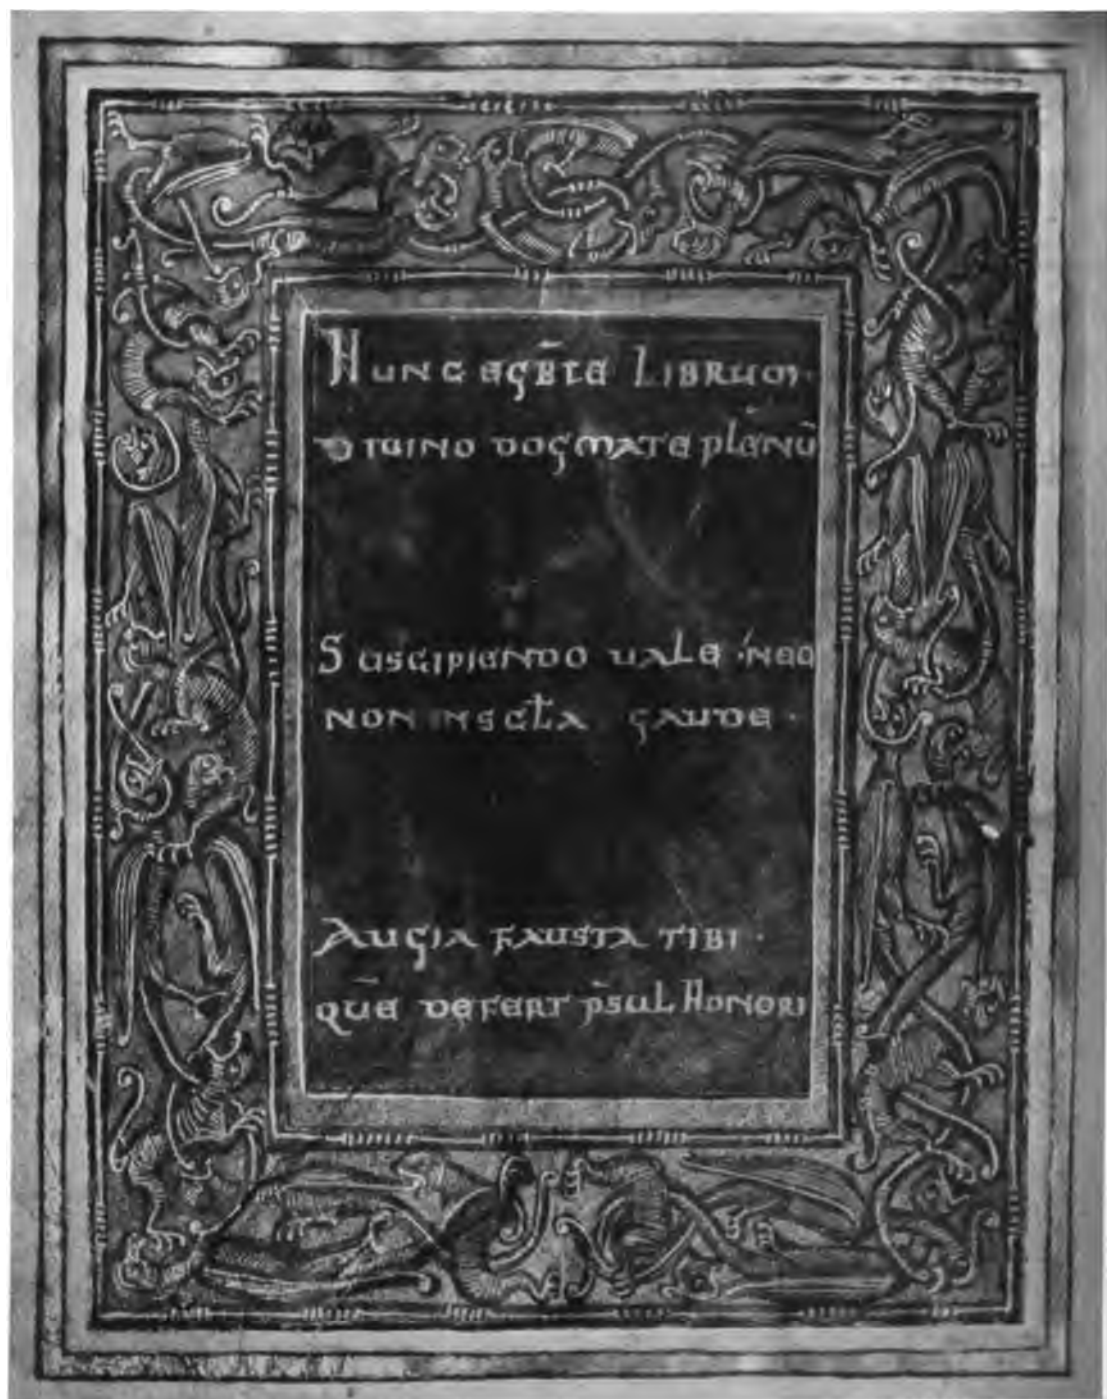 HUNC EGB̄TE LIBRUM·
DIUINO DOGMATE PLENŪ
SUSCIPIENDO UALE ·NEC
NON IN SCŁA GAUDE·
AUGIA FAUSTA TIBI·
QUĒ DEFERT P̄SUL HONORI